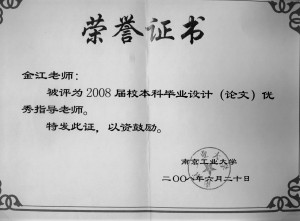 荣誉证书
金江老师：
被评为 2008 届校本科毕业设计（论文）优
秀指导老师。
特发此证，以资鼓励。
南京工业大学
二〇〇八年六月二十日